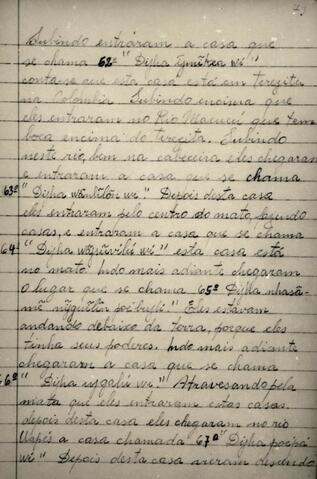 73
Subindo entráram a casa que
se chama 62ª " Diʝha wi "
conta-se que esta casa está em terezita
na Colombia. Subindo encima que
eles entraram no Rio Macucú que tem
boca encima do terezita. Subindo
neste rio, bem na cabeceira eles chegaram
e entraram a casa que se chama
63ª " Diʝha wi". Depois desta casa
eles entraram pelo centro do mato, fazendo
casas, e entraram a casa que se chama
64ª " Diʝha wi" esta casa está
no mato. Indo mais adiante chegaram
O lugar que se chama 65ª Diʝha
Eles estávam
andando debaixo da terra, porque eles
tinha seus poderes. Indo mais adiante
chegaram a casa que se chama
66ª " Diʝha wi"! Atravesando pela
mata que eles entraram estas casas.
depois desta casa eles chegaram no rio
Uapés a casa chamada 67ª " Diʝha
wi" Depois desta casa vieram descendo